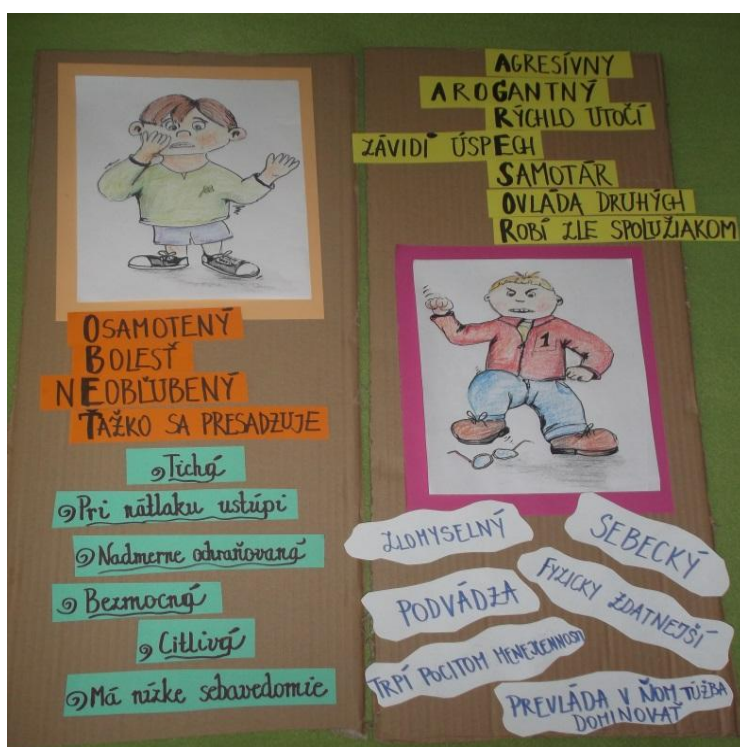 OSAMOTENÝ
BOLESŤ
NEOBĽÚBENÝ
ŤAŽKO SA PRESADZUJE
Tichá
Pri nátlaku ustúpi
Nadmerne ochraňovaná
Bezmocná
Citlivá
Má nízke sebavedomie
AGRESÍVNY
AROGANTNÝ
RÝCHLO ÚTOČÍ
ZÁVIDÍ ÚSPECH
SAMOTÁR
OVLÁDA DRUHÝCH
ROBÍ ZLE SPOLUŽIAKOM
1
ZLOMYSELNÝ
SEBECKÝ
PODVÁDZA
FYZICKY ZDATNEJŠÍ
TRPÍ POCITOM MENEJCENNOSTI
PREVLÁDA V ŇOM TÚŽBA
DOMINOVAŤ